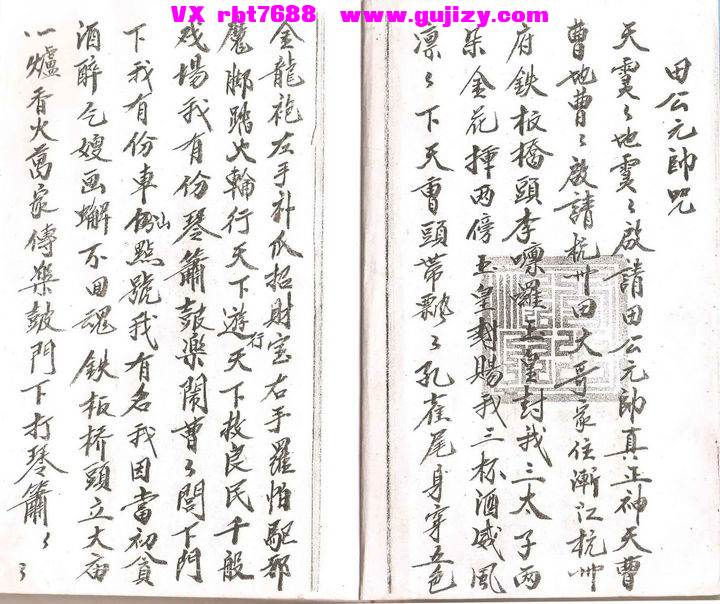 VX rbt7688 www.gujizy.com
田公元帥咒
天灵〻地灵〻啟請田公元帥真正神天曹
曹地曹〻啟請杭州田大哥家住浙江杭州
府鉄板橋頭李㗚囉玉皇封我三太子両
朵金花揷両傍玉皇封賜我三杯酒威風
凛〻下天曹頭帶飘〻孔雀尾身穿五色
金龍袍左手 招財宝右手羅怕 都
魔脚踏火輪行天下遊行天下救良民千般
戏場我有份琴簫鼓樂鬧曹〻 下門
下我有份車 山點號我有名我因當初貪
酒醉乞嫂画 不回魂鉄板桥頭立大庙
一爐香火萬家傳樂鼓門下打琴簫〻〻